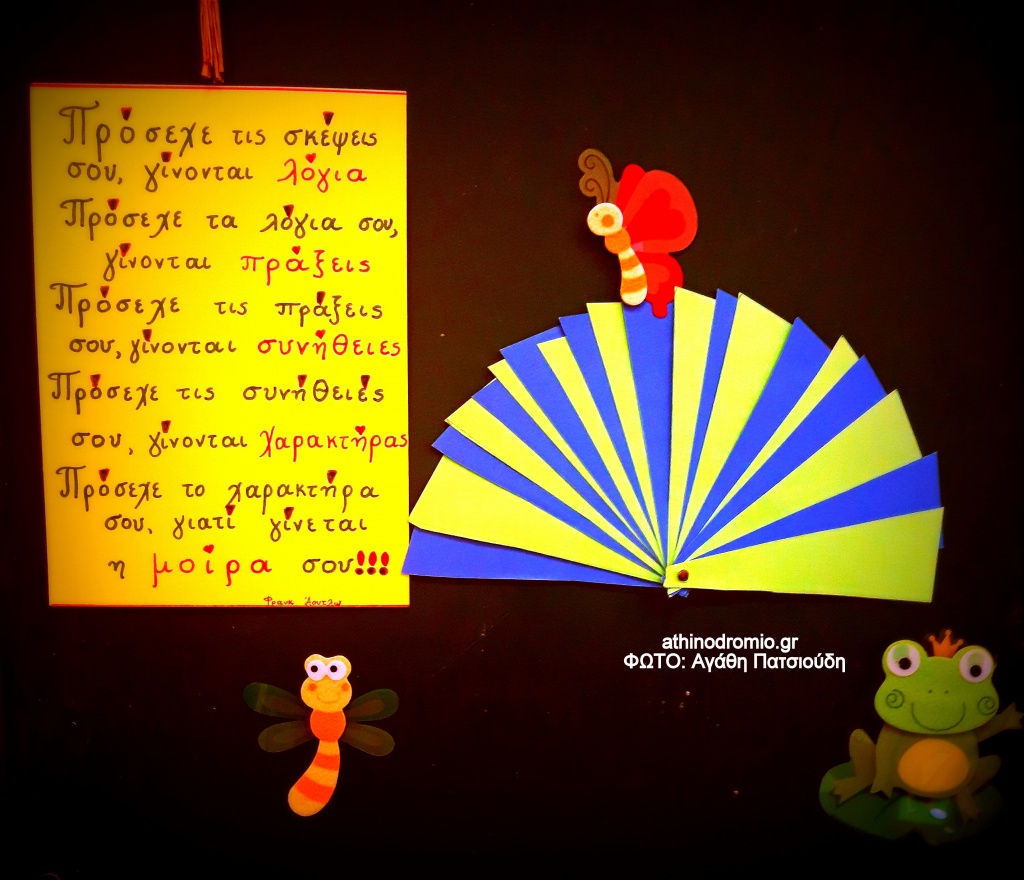 Πρόσεχε τις σκέψεις
σου, γίνονται λόγια
Πρόσεχε τα λόγια σου,
γίνονται πράξεις
Πρόσεχε τις πράξεις
σου, γίνονται συνήθειες
Πρόσεχε τις συνήθειές
σου, γίνονται χαρακτήρας
Πρόσεχε το χαρακτήρα
σου, γιατί γίνεται
η μοίρα σου!!!
Φρανκ Άουτλω
athinodromio.gr
ΦΩΤΟ: Αγάθη Πατσιούδη